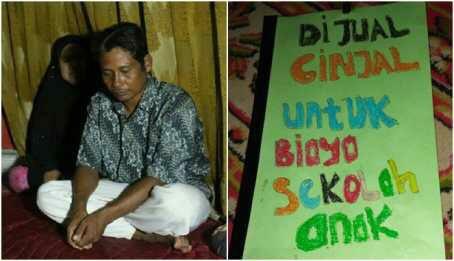 DiJUAL
GiNJAL
UntUK
Biaya
SeKoLah
anak